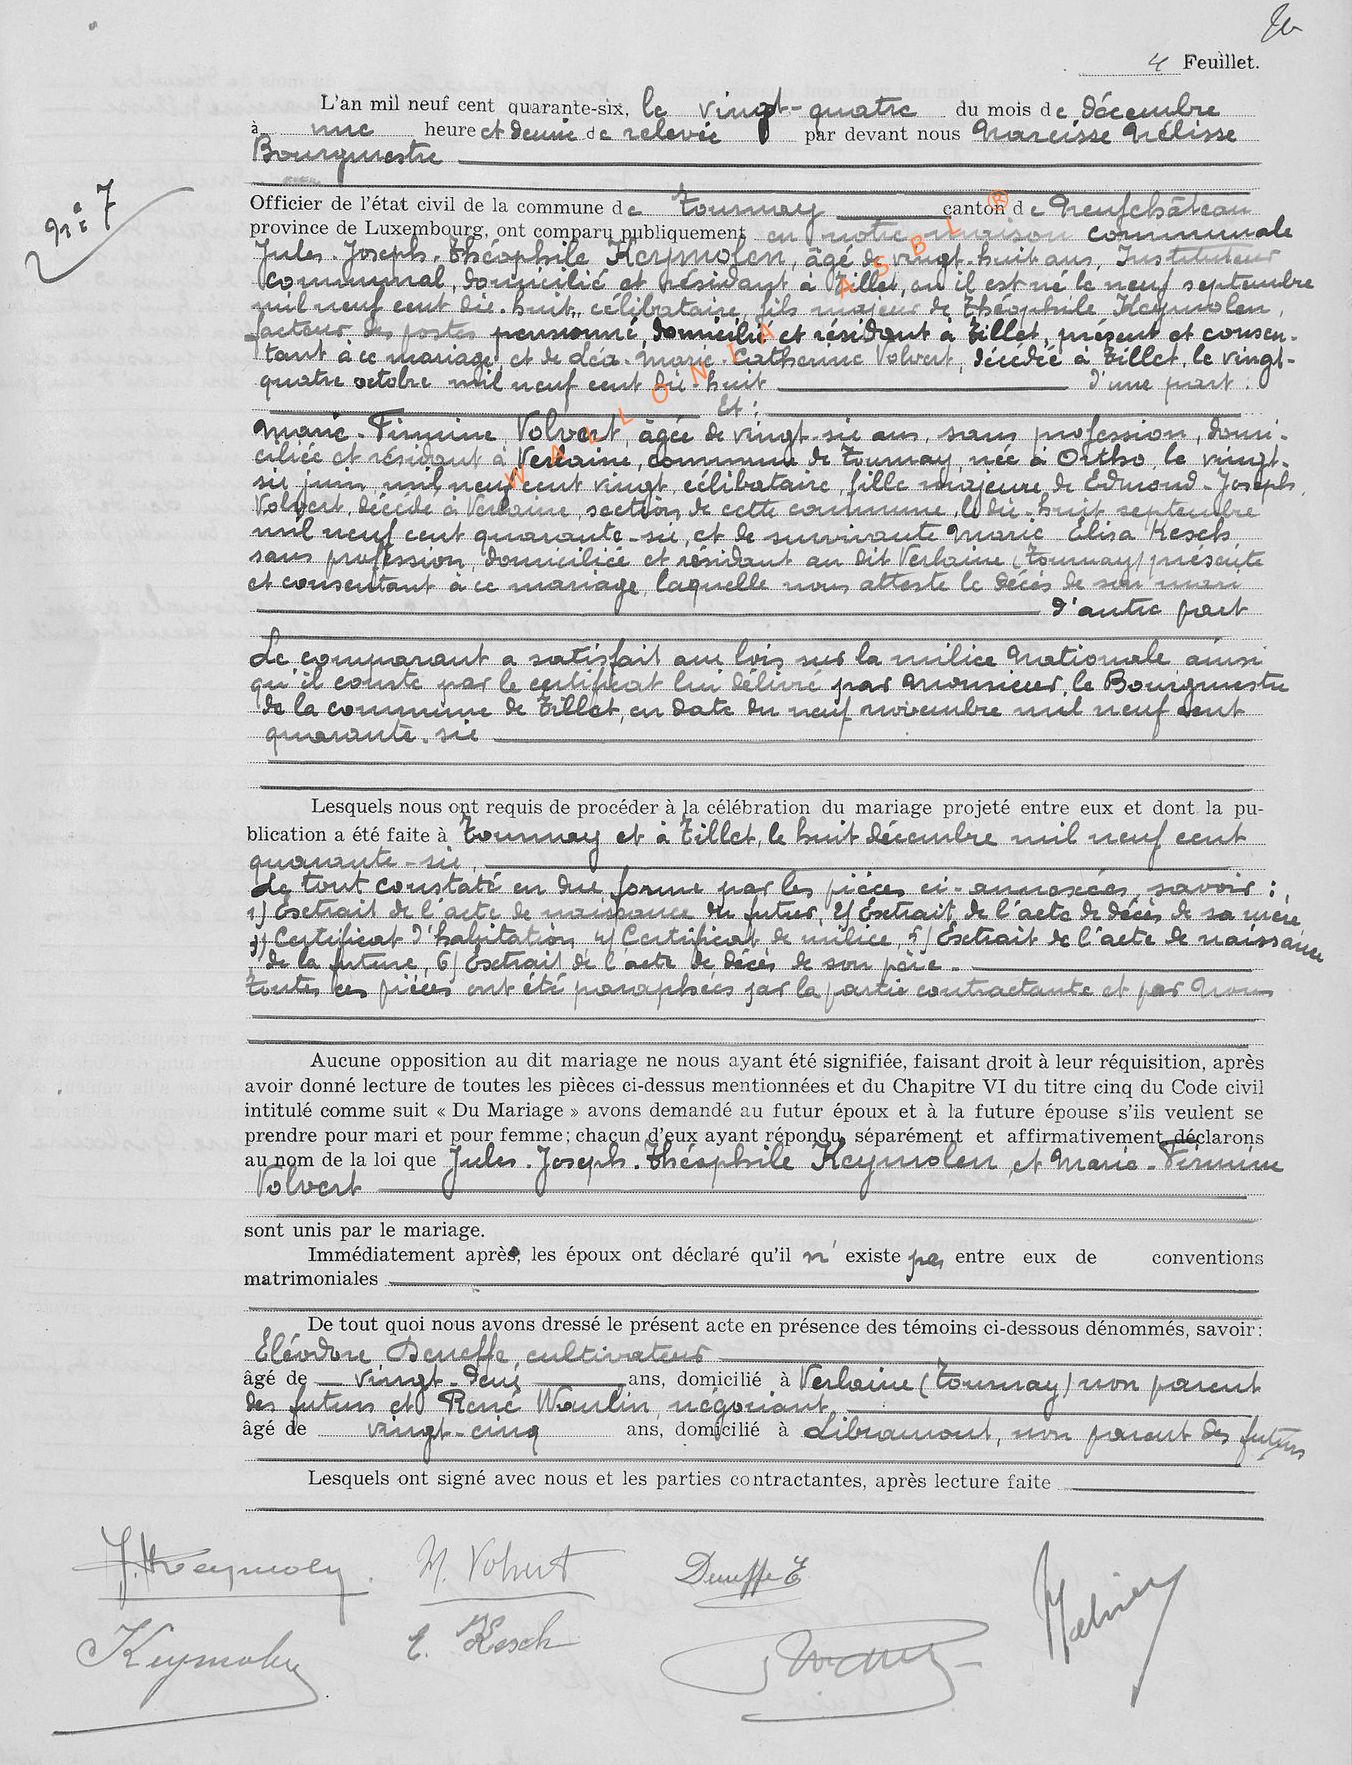 4 Feuillet.
L'an mil neuf cent quarante-six, le vingt-quatre du mois de décembre
à une heure et demie de relevée par devant nous Narcisse Mélisse
Bourgmestre
N° 7
Officier de l'état civil de la commune de Tournay canton de Neufchâteau
province de Luxembourg, ont comparu publiquement en notre maison communale
Jules-Joseph-Théophile Keymolen, âgé de vingt-huit ans, Instituteur
communal, domicilié et résidant à Tillet, où il est né le neuf septembre
mil neuf cent dix-huit, célibataire, fils majeur de Théophile Keymolen,
facteur des postes pensionné, domicilié et résidant à Tillet, présent et consen-
tant à ce mariage et de Léa-Marie-Catherine Volvert, décédée à Tillet, le vingt-
quatre octobre mil neuf cent dix-huit d'une part :
Et :
Marie-Firmine Volvert, âgée de vingt-six ans, sans profession, domi-
ciliée et résidant à Verlaine, commune de Tournay, née à Ortho, le vingt-
six juin mil neuf cent vingt, célibataire, fille majeure de Edmond-Joseph
Volvert, décédé à Verlaine, section de cette commune, le dix-huit septembre
mil neuf cent quarante-six, et de survivante Marie Elisa Kesch
sans profession, domiciliée et résidant au dit Verlaine (Tournay) présente
et consentant à ce mariage, laquelle nous atteste le décès de son mari
d'autre part
Le comparant a satisfait aux lois sur la milice Nationale ainsi
qu'il conste par le certificat lui délivré par Monsieur le Bourgmestre
de la commune de Tillet, en date du neuf novembre mil neuf cent
quarante-six
Lesquels nous ont requis de procéder à la célébration du mariage projeté entre eux et dont la pu-
blication a été faite à Tournay et à Tillet, le huit décembre mil neuf cent
quarante-six,
Le tout constaté en due forme par les pièces ci-annexées savoir :
1) Extrait de l'acte de naissance du futur, 2) Extrait de l'acte de décès de sa mère,
3) Certificat d'habitation, 4) Certificat de milice, 5) Extrait de l'acte de naissance
de la future, 6) Extrait de l'acte de décès de son père.
Toutes ces pièces ont été paraphées par la partie contractante et par Nous
Aucune opposition au dit mariage ne nous ayant été signifiée, faisant droit à leur réquisition, après
avoir donné lecture de toutes les pièces ci-dessus mentionnées et du Chapitre VI du titre cinq du Code civil
intitulé comme suit « Du Mariage » avons demandé au futur époux et à la future épouse s'ils veulent se
prendre pour mari et pour femme; chacun d'eux ayant répondu séparément et affirmativement, déclarons
au nom de la loi que Jules-Joseph-Théophile Keymolen et Marie-Firmine
Volvert
sont unis par le mariage.
Immédiatement après, les époux ont déclaré qu'il n' existe pas entre eux de conventions
matrimoniales
De tout quoi nous avons dressé le présent acte en présence des témoins ci-dessous dénommés, savoir:
Eléodore Deneffe, cultivateur
âgé de vingt-deux ans, domicilié à Verlaine (Tournay) non parent
des futurs et René Waulin, négociant
âgé de vingt-cinq ans, domicilié à Libramont, non parent des futurs
Lesquels ont signé avec nous et les parties contractantes, après lecture faite
J. Keymolen M. Volvert Deneffe E
Keymolen E. Kesch
WALLONIA ASBL ®